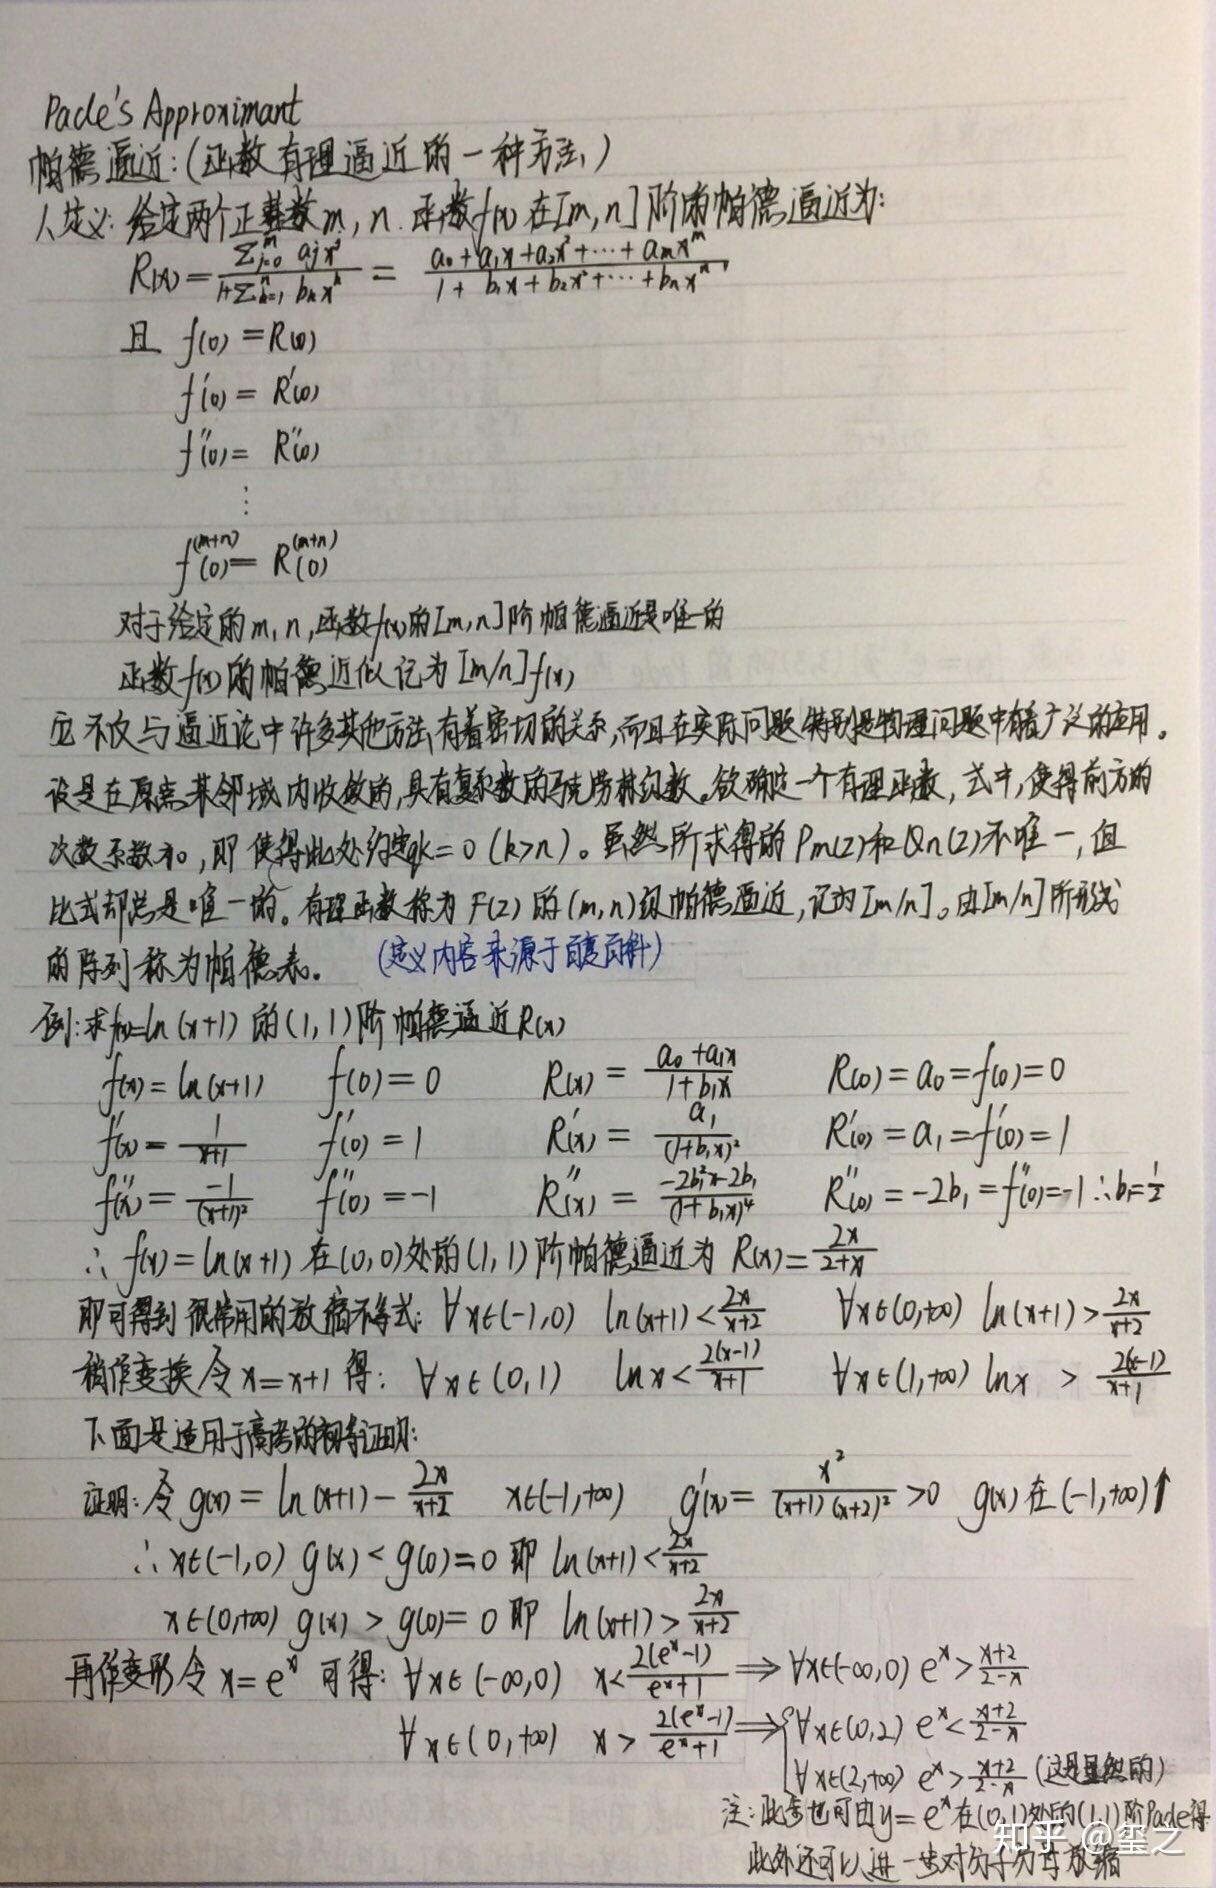 Pade's Approximant
帕德逼近:(函数有理逼近的一种方法)
1.定义:给定两个正整数m,n.函数f(x)在[m,n]阶的帕德逼近为:
R(x)=\frac{\sum_{j=0}^{m} a_j x^j}{1+\sum_{k=1}^{n} b_k x^k} = \frac{a_0+a_1x+a_2x^2+⋯+a_mx^m}{1+b_1x+b_2x^2+⋯+b_nx^n},
且 f(0)=R(0)
f'(0)=R'(0)
f''(0)=R''(0)
⋮
f^{(m+n)}(0)=R^{(m+n)}(0)
对于给定的m,n,函数f(x)的[m,n]阶帕德逼近是唯一的
函数f(x)的帕德近似记为[m/n]f(x)
它不仅与逼近论中许多其他方法有着密切的关系,而且在实际问题特别是物理问题中有着广泛的应用。
设是在原点某邻域内收敛的,具有复系数的马克劳林级数。欲确定一个有理函数,式中,使得前方的
次数系数为0,即使得此处约定qk=0(k>n)。虽然所求得的Pm(z)和Qn(z)不唯一,但
比式却总是唯一的。有理函数称为F(z)的(m,n)级帕德逼近,记为[m/n]。由[m/n]所形成
的阵列称为帕德表。 (定义内容来源于百度百科)
例:求f(x)=ln(x+1)的(1,1)阶帕德逼近R(x)
f(x)=ln(x+1) f(0)=0 R(x)=\frac{a_0+a_1x}{1+b_1x} R(0)=a_0=f(0)=0
f'(x)=\frac{1}{x+1} f'(0)=1 R'(x)=\frac{a_1}{(1+b_1x)^2} R'(0)=a_1=f'(0)=1
f''(x)=\frac{-1}{(x+1)^2} f''(0)=-1 R''(x)=\frac{-2b_1^2x-2b_1}{(1+b_1x)^4} R''(0)=-2b_1=f''(0)=-1 ∴b_1=\frac{1}{2}
∴f(x)=ln(x+1)在(0,0)处的(1,1)阶帕德逼近为R(x)=\frac{2x}{2+x}
即可得到很常用的放缩不等式:∀x∈(-1,0) ln(x+1)<\frac{2x}{x+2} ∀x∈(0,+∞) ln(x+1)>\frac{2x}{x+2}
稍作变换令x=x+1得:∀x∈(0,1) lnx<\frac{2(x-1)}{x+1} ∀x∈(1,+∞) lnx>\frac{2(x-1)}{x+1}
下面是适用于高考的初等证明:
证明:令g(x)=ln(x+1)-\frac{2x}{x+2} x∈(-1,+∞) g'(x)=\frac{x^2}{(x+1)(x+2)^2}>0 g(x)在(-1,+∞)↑
∴x∈(-1,0) g(x)<g(0)=0 即 ln(x+1)<\frac{2x}{x+2}
x∈(0,+∞) g(x)>g(0)=0 即 ln(x+1)>\frac{2x}{x+2}
再作变形令x=e^x 可得:∀x∈(-∞,0) x<\frac{2(e^x-1)}{e^x+1} ⇒ ∀x∈(-∞,0) e^x>\frac{x+2}{2-x}
∀x∈(0,+∞) x>\frac{2(e^x-1)}{e^x+1} ⇒ {∀x∈(0,2) e^x<\frac{x+2}{2-x}
∀x∈(2,+∞) e^x>\frac{x+2}{2-x} (这是显然的)
注:此步也可由y=e^x在(0,1)处的(1,1)阶Pade得
此外还可以进一步对分子分母放缩
知乎 @玺之